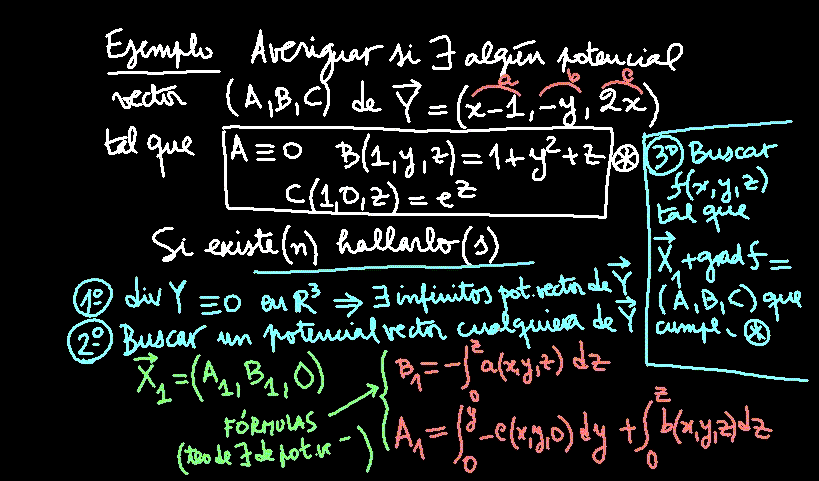 Ejemplo Averiguar si ∃ algún potencial
vector (A,B,C) de Y⃗ = (x-1, -y, 2x)
a b c
tal que A ≡ 0 B(1,y,z) = 1+y²+z ⊛
C(1,0,z) = e^z
Si existe(n) hallarlo(s)
1º div Y ≡ 0 en R³ ⇒ ∃ infinitos pot. vector de Y⃗
2º Buscar un potencial vector cualquiera de Y⃗
X⃗₁ = (A₁, B₁, 0)
FÓRMULAS
(teo de ∃ de pot. ve -)
B₁ = -∫₀^z a(x,y,z) dz
A₁ = ∫₀^y -c(x,y,0) dy + ∫₀^z b(x,y,z) dz
3º Buscar
f(x,y,z)
tal que
X⃗₁ + grad f =
(A,B,C) que
cumpl. ⊛